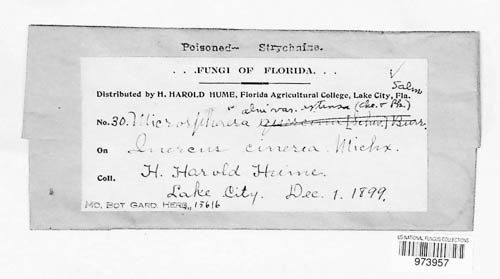 Poisoned- Strychnine.
. . .FUNGI OF FLORIDA. . . .
Salm
Distributed by H. HAROLD HUME, Florida Agricultural College, Lake City, Fla.
" alni var. extensa (Cke. & Pk.)
No. 30. Microsphaera quercina [Schw.] Burr.
On Quercus cinerea Michx.
Coll. H. Harold Hume.
Lake City. Dec. 1. 1899.
MO. BOT GARD. HERB. 15616
US NATIONAL FUNGUS COLLECTIONS
973957